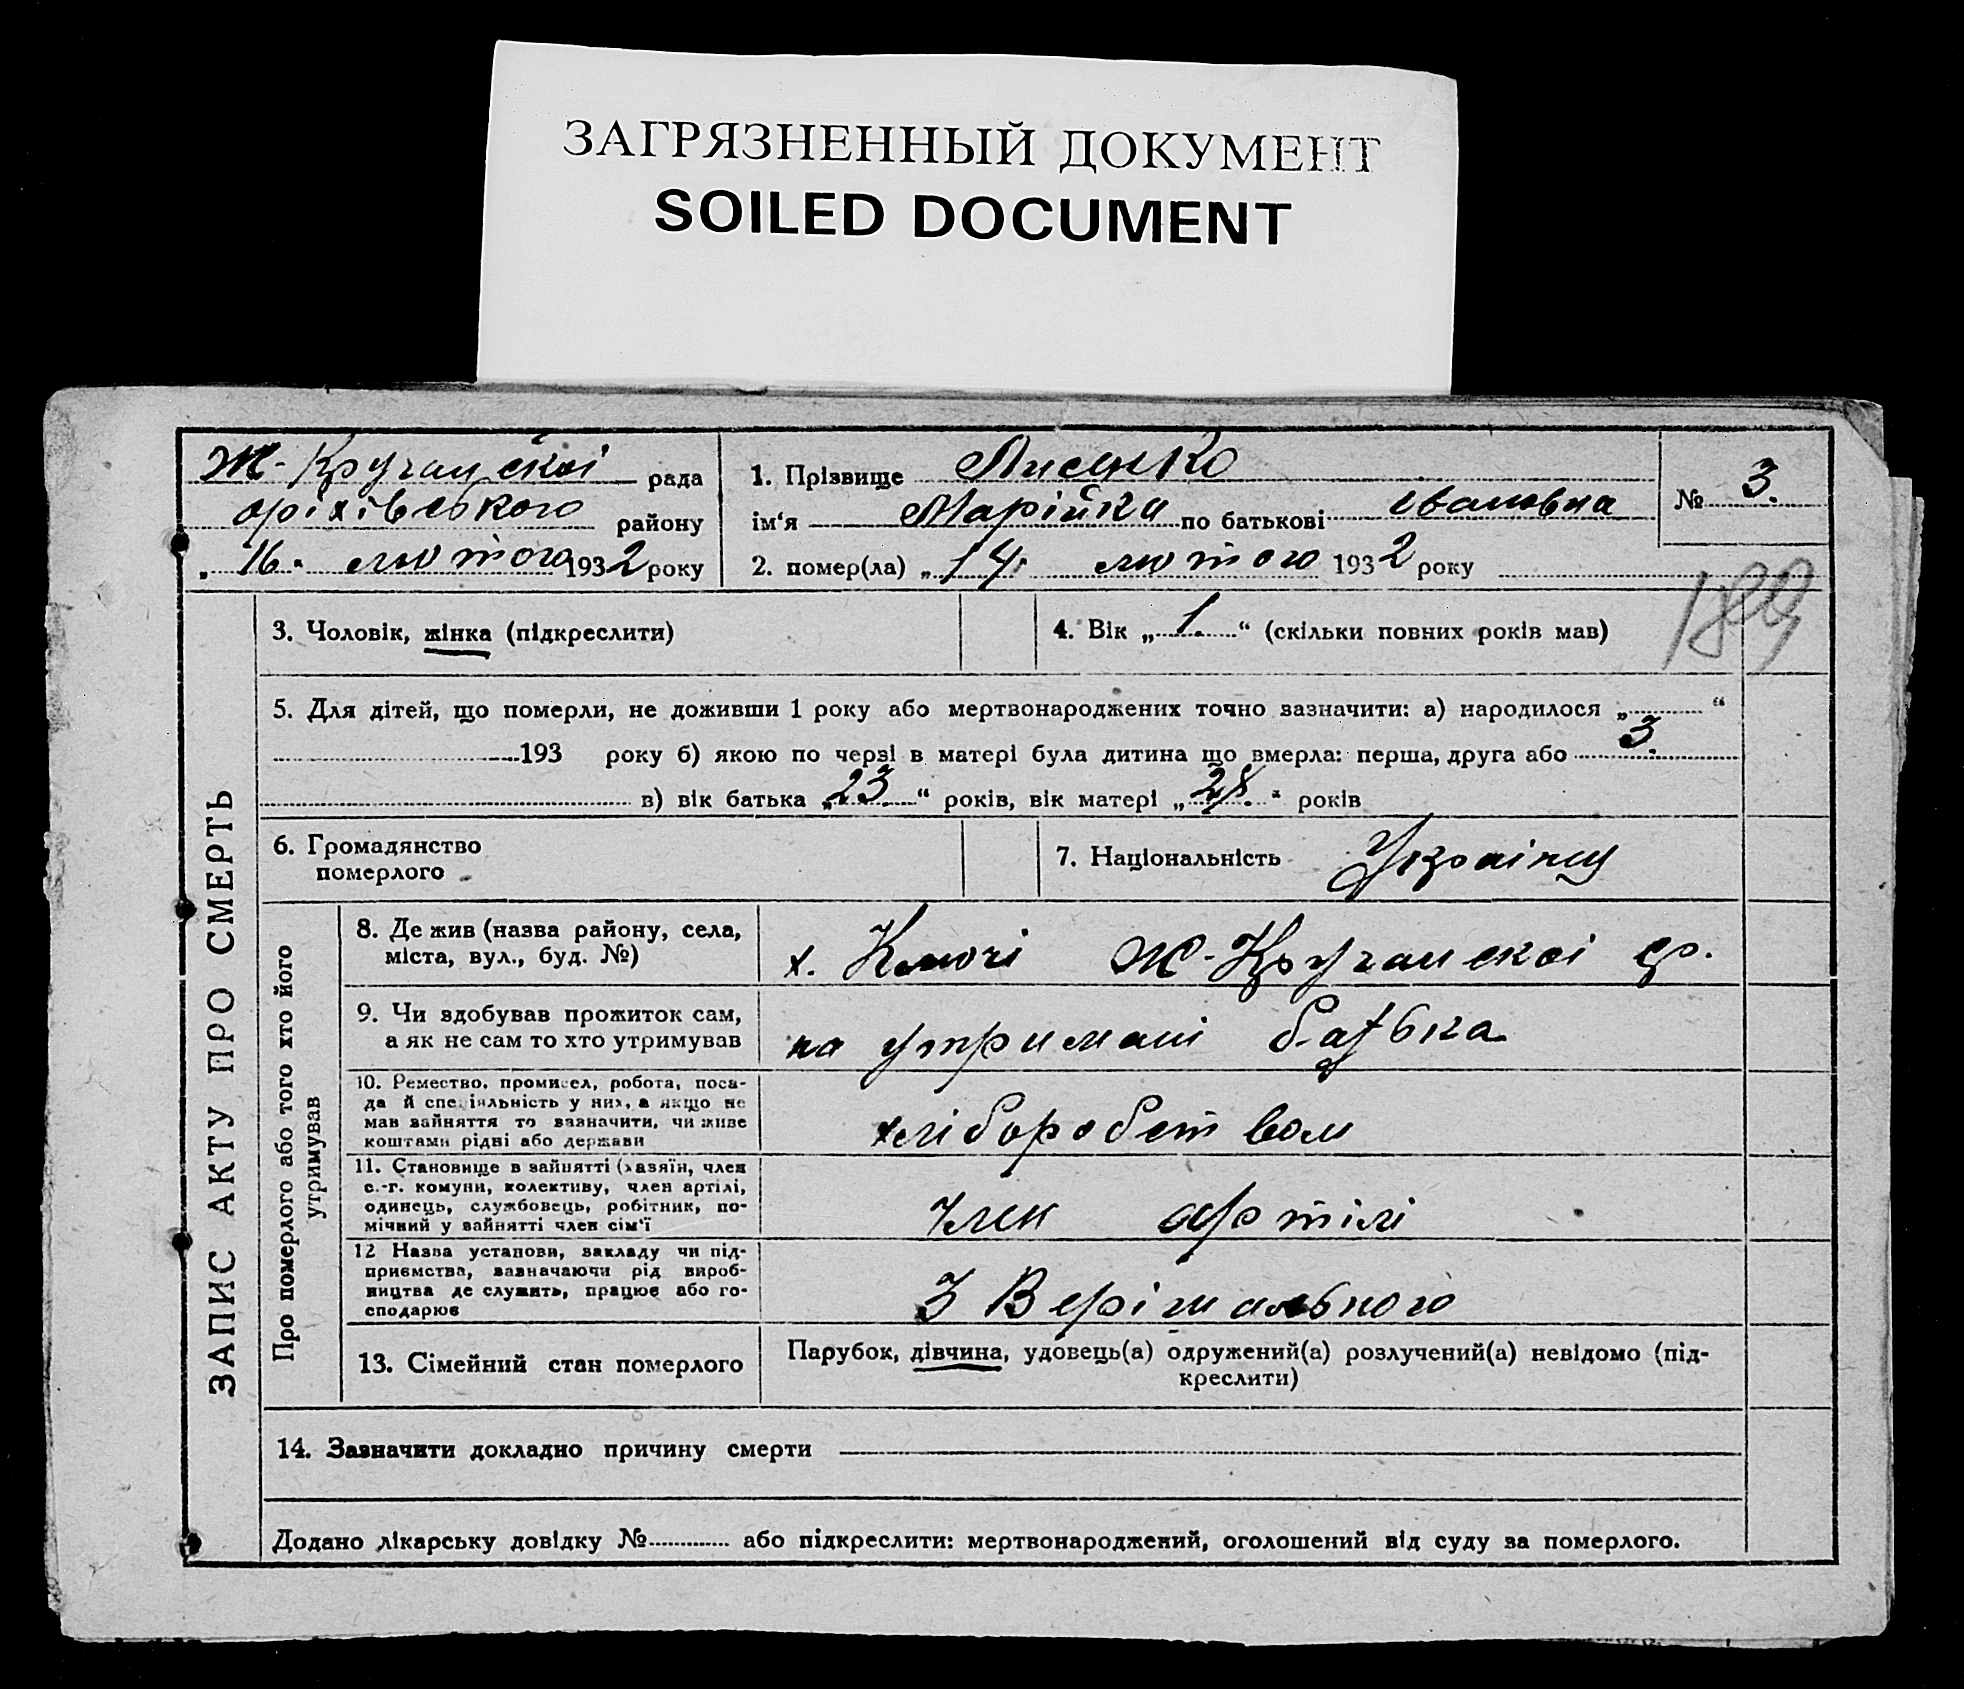 ЗАГРЯЗНЕННЫЙ ДОКУМЕНТ
SOILED DOCUMENT
Ж-Кручанскоі рада
оріхівського району
„ 16. лютого 1932 року
1. Прізвище Лисенко
ім‘я Марійка по батькові Івановна
2. помер(ла) „ 14. лютого 1932 року
№ 3.
189
ЗАПИС АКТУ ПРО СМЕРТЬ
3. Чоловік, жінка (підкреслити)
4. Вік „ 1. “ (скільки повних років мав)
5. Для дітей, що померли, не доживши 1 року або мертвонароджених точно зазначити: а) народилося „ “
193 року б) якою по черзі в матері була дитина що вмерла: перша, друга або 3.
в) вік батька „ 23. “ років, вік матері „ 28. “ років
6. Громадянство
померлого
7. Національність Українц
Про померлого або того хто його
утримував
8. Де жив (назва району, села,
міста, вул., буд. №)
х. Ключі Ж-Кручанскоі ср.
9. Чи здобував прожиток сам,
а як не сам то хто утримував
на утримані батька
10. Ремество, промисел, робота, поса-
да й спеціяльність у них, а якщо не
мав зайняття то зазначити, чи живе
коштами рідні або держави
хліборобством
11. Становище в зайнятті (хазяїн, член
с.-г. комуни, колективу, член артілі,
одинець, службовець, робітник, по-
мічний у зайнятті член сім‘ї
член артілі
12 Назва установи, закладу чи під-
приємства, зазначаючи рід вироб-
ництва де служить, працює або го-
сподарює
З
13. Сімейний стан померлого
Парубок, дівчина, удовець(а) одружений(а) розлучений(а) невідомо (під-
креслити)
14. Зазначити докладно причину смерти
Додано лікарську довідку № або підкреслити: мертвонароджений, оголошений від суду за померлого.